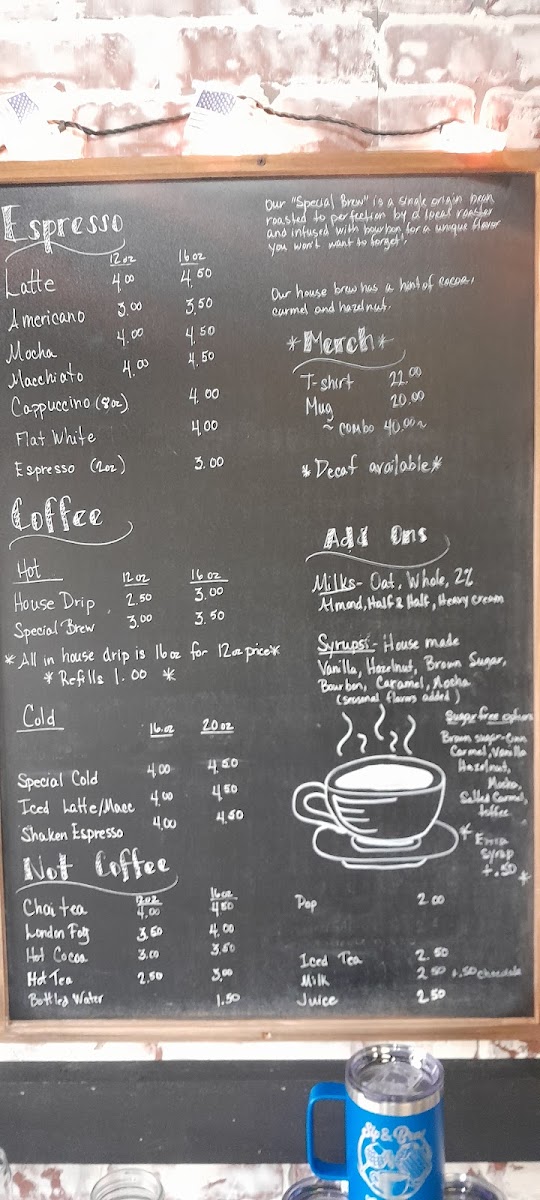 Espresso
12oz 16oz
Latte 4.00 4.50
Americano 3.00 3.50
Mocha 4.00 4.50
Macchiato 4.00 4.50
Cappuccino (8oz) 4.00
Flat White 4.00
Espresso (2oz) 3.00
Coffee
Hot 12oz 16oz
House Drip 2.50 3.00
Special Brew 3.00 3.50
*All in house drip is 16oz for 12oz price*
*Refills 1.00 *
Cold 16oz 20oz
Special Cold 4.00 4.50
Iced Latte/Macc 4.00 4.50
Shaken Espresso 4.00 4.50
Not Coffee
12oz 16oz
Chai tea 4.00 4.50
London Fog 3.50 4.00
Hot Cocoa 3.00 3.50
Hot Tea 2.50 3.00
Bottled Water 1.50
Our "Special Brew" is a single origin bean
roasted to perfection by a local roaster
and infused with bourbon for a unique flavor
you won't want to forget!
Our house brew has a hint of cocoa,
carmel and hazelnut.
*Merch*
T-shirt 22.00
Mug 20.00
~ combo 40.00 ~
*Decaf available*
Add Ons
Milks- Oat, Whole, 2%
Almond, Half & Half, Heavy cream
Syrups:- House made
Vanilla, Hazelnut, Brown Sugar,
Bourbon, Caramel, Mocha
(seasonal flavors added)
Sugar free options
Brown sugar-Cinn
Carmel, Vanilla
Hazelnut,
Mocha,
Salted Carmel,
toffee
* Extra
syrup
+.50 *
Pop 2.00
Iced Tea 2.50
Milk 2.50 +.50 chocolate
Juice 2.50
Sip & Brew